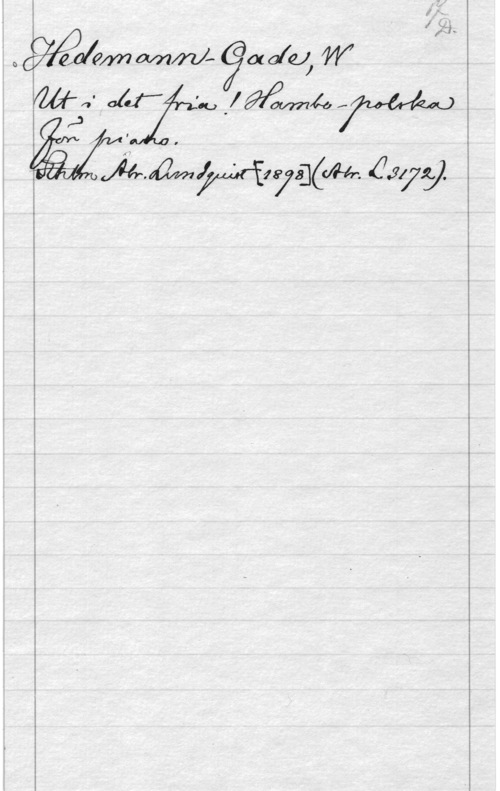 Hedemann-Gade, W
Ut i det fria! Hambo-polska
för piano.
Sthlm Abr. Lundquist [1898] (Abr. L. 3172).